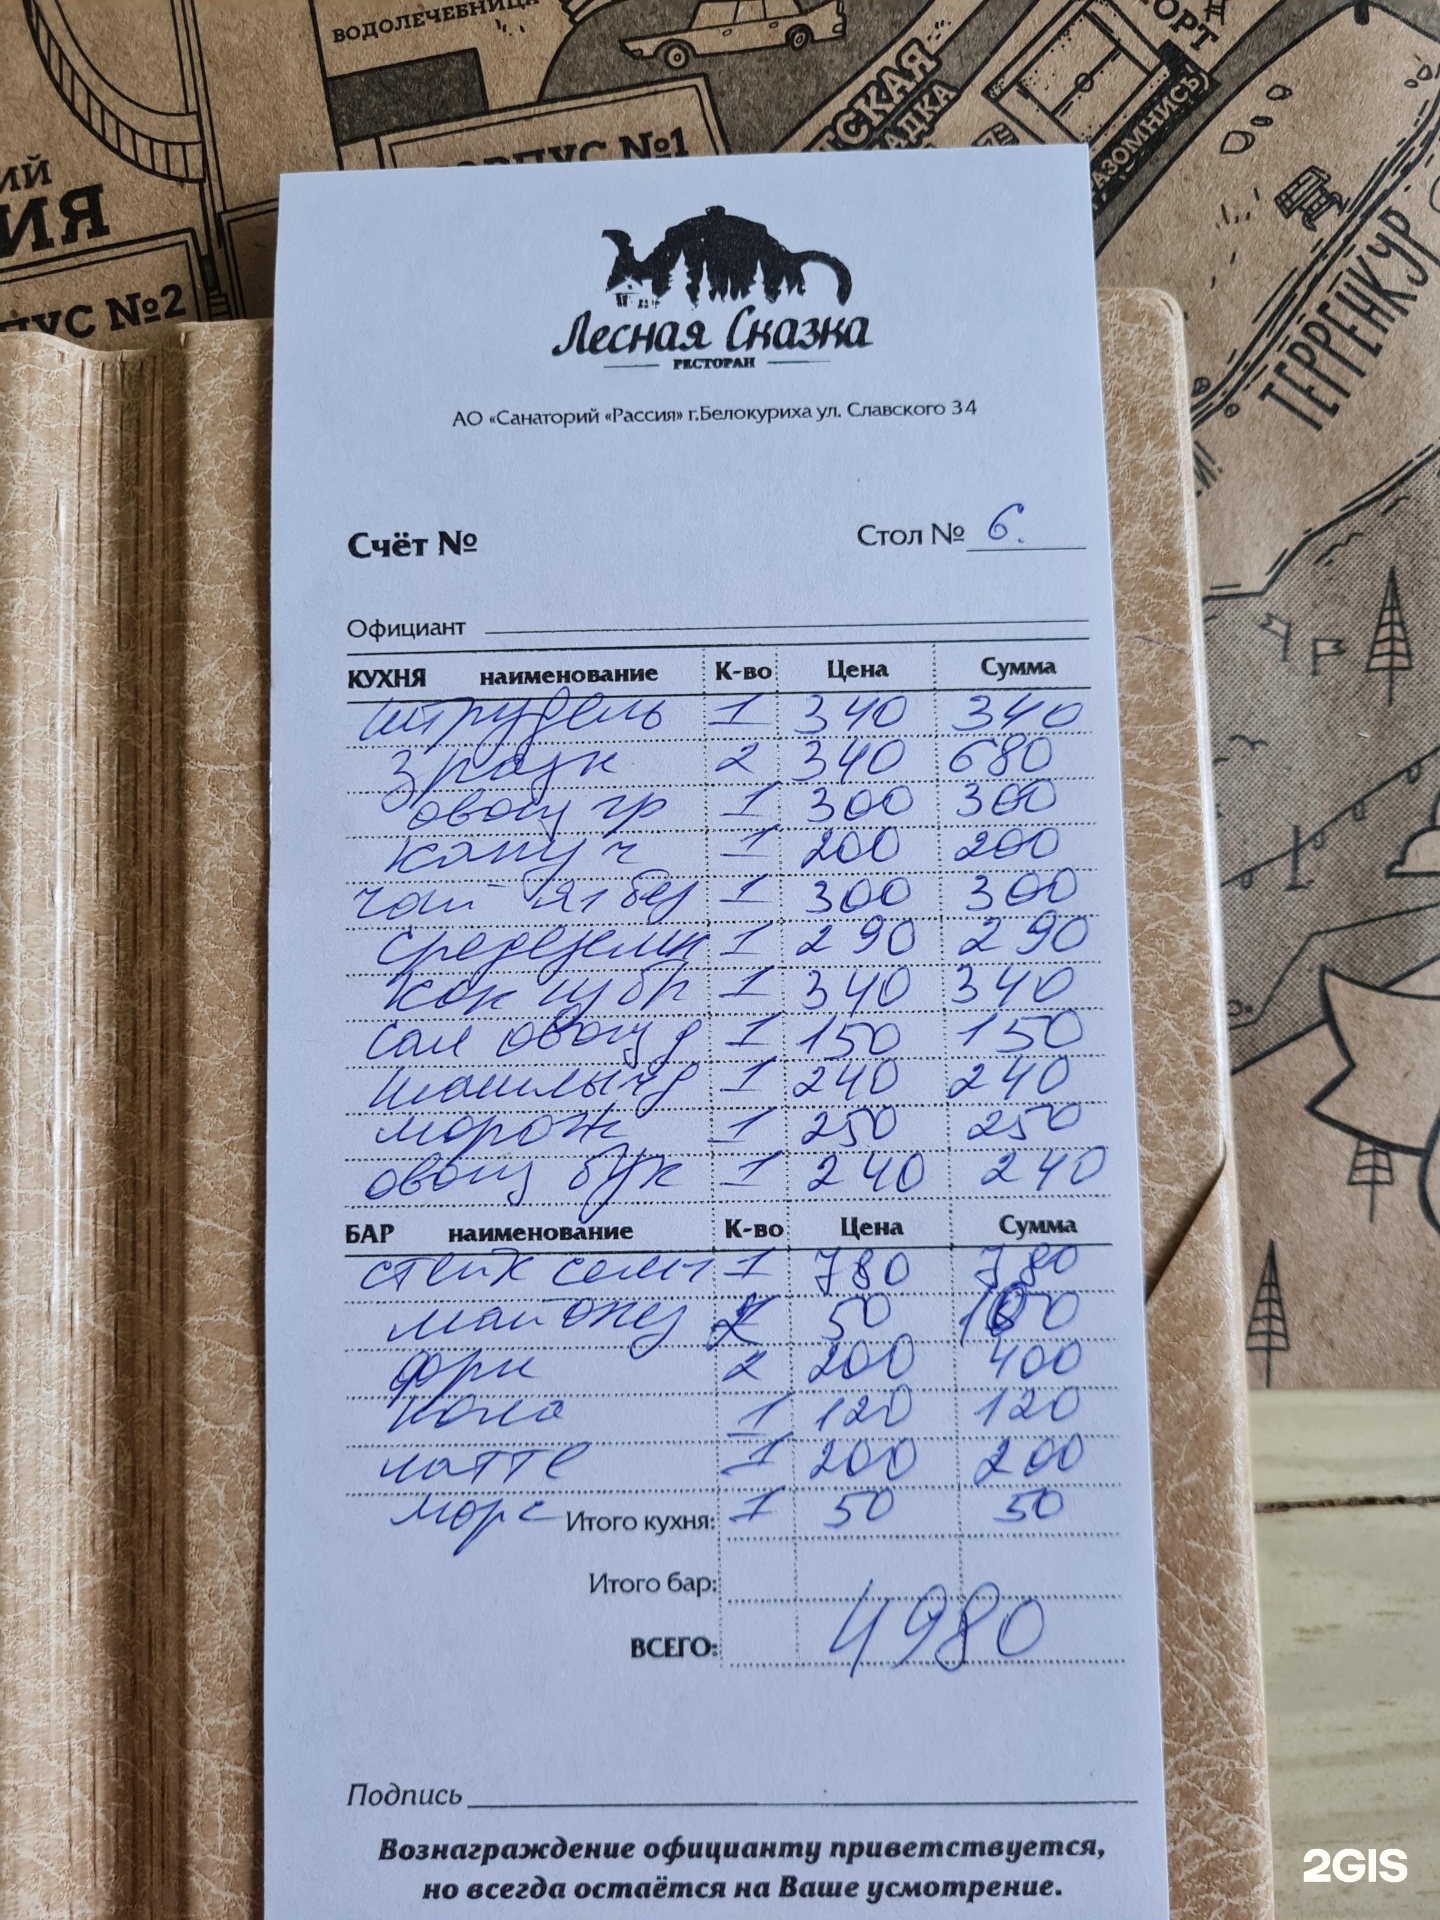 ВОДОЛЕЧЕБНИЦА
КОРПУС №1
ИЙ
ИЯ
ПУС №2
СКАЯ
АДКА
ОРТ
РАЗОМНИСЬ
ТЕРРЕНКУР
Лесная Сказка
РЕСТОРАН
АО «Санаторий «Рассия» г.Белокуриха ул. Славского 34
Счёт № Стол № 6.
Официант
КУХНЯ наименование К-во Цена Сумма
штрудель 1 340 340
2 340 680
овощ гр 1 300 300
капуч 1 200 200
чай яг бер 1 300 300
средеземн 1 290 290
1 340 340
сал овощ д 1 150 150
шашлыч д 1 240 240
морож 1 250 250
овощ бук 1 240 240
БАР наименование К-во Цена Сумма
стейк семг 1 780 780
майонез 2 50 100
фри 2 200 400
кола 1 120 120
латте 1 200 200
морс Итого кухня: 1 50 50
Итого бар:
ВСЕГО: 4980
Подпись
Вознаграждение официанту приветствуется,
но всегда остаётся на Ваше усмотрение.
2GIS